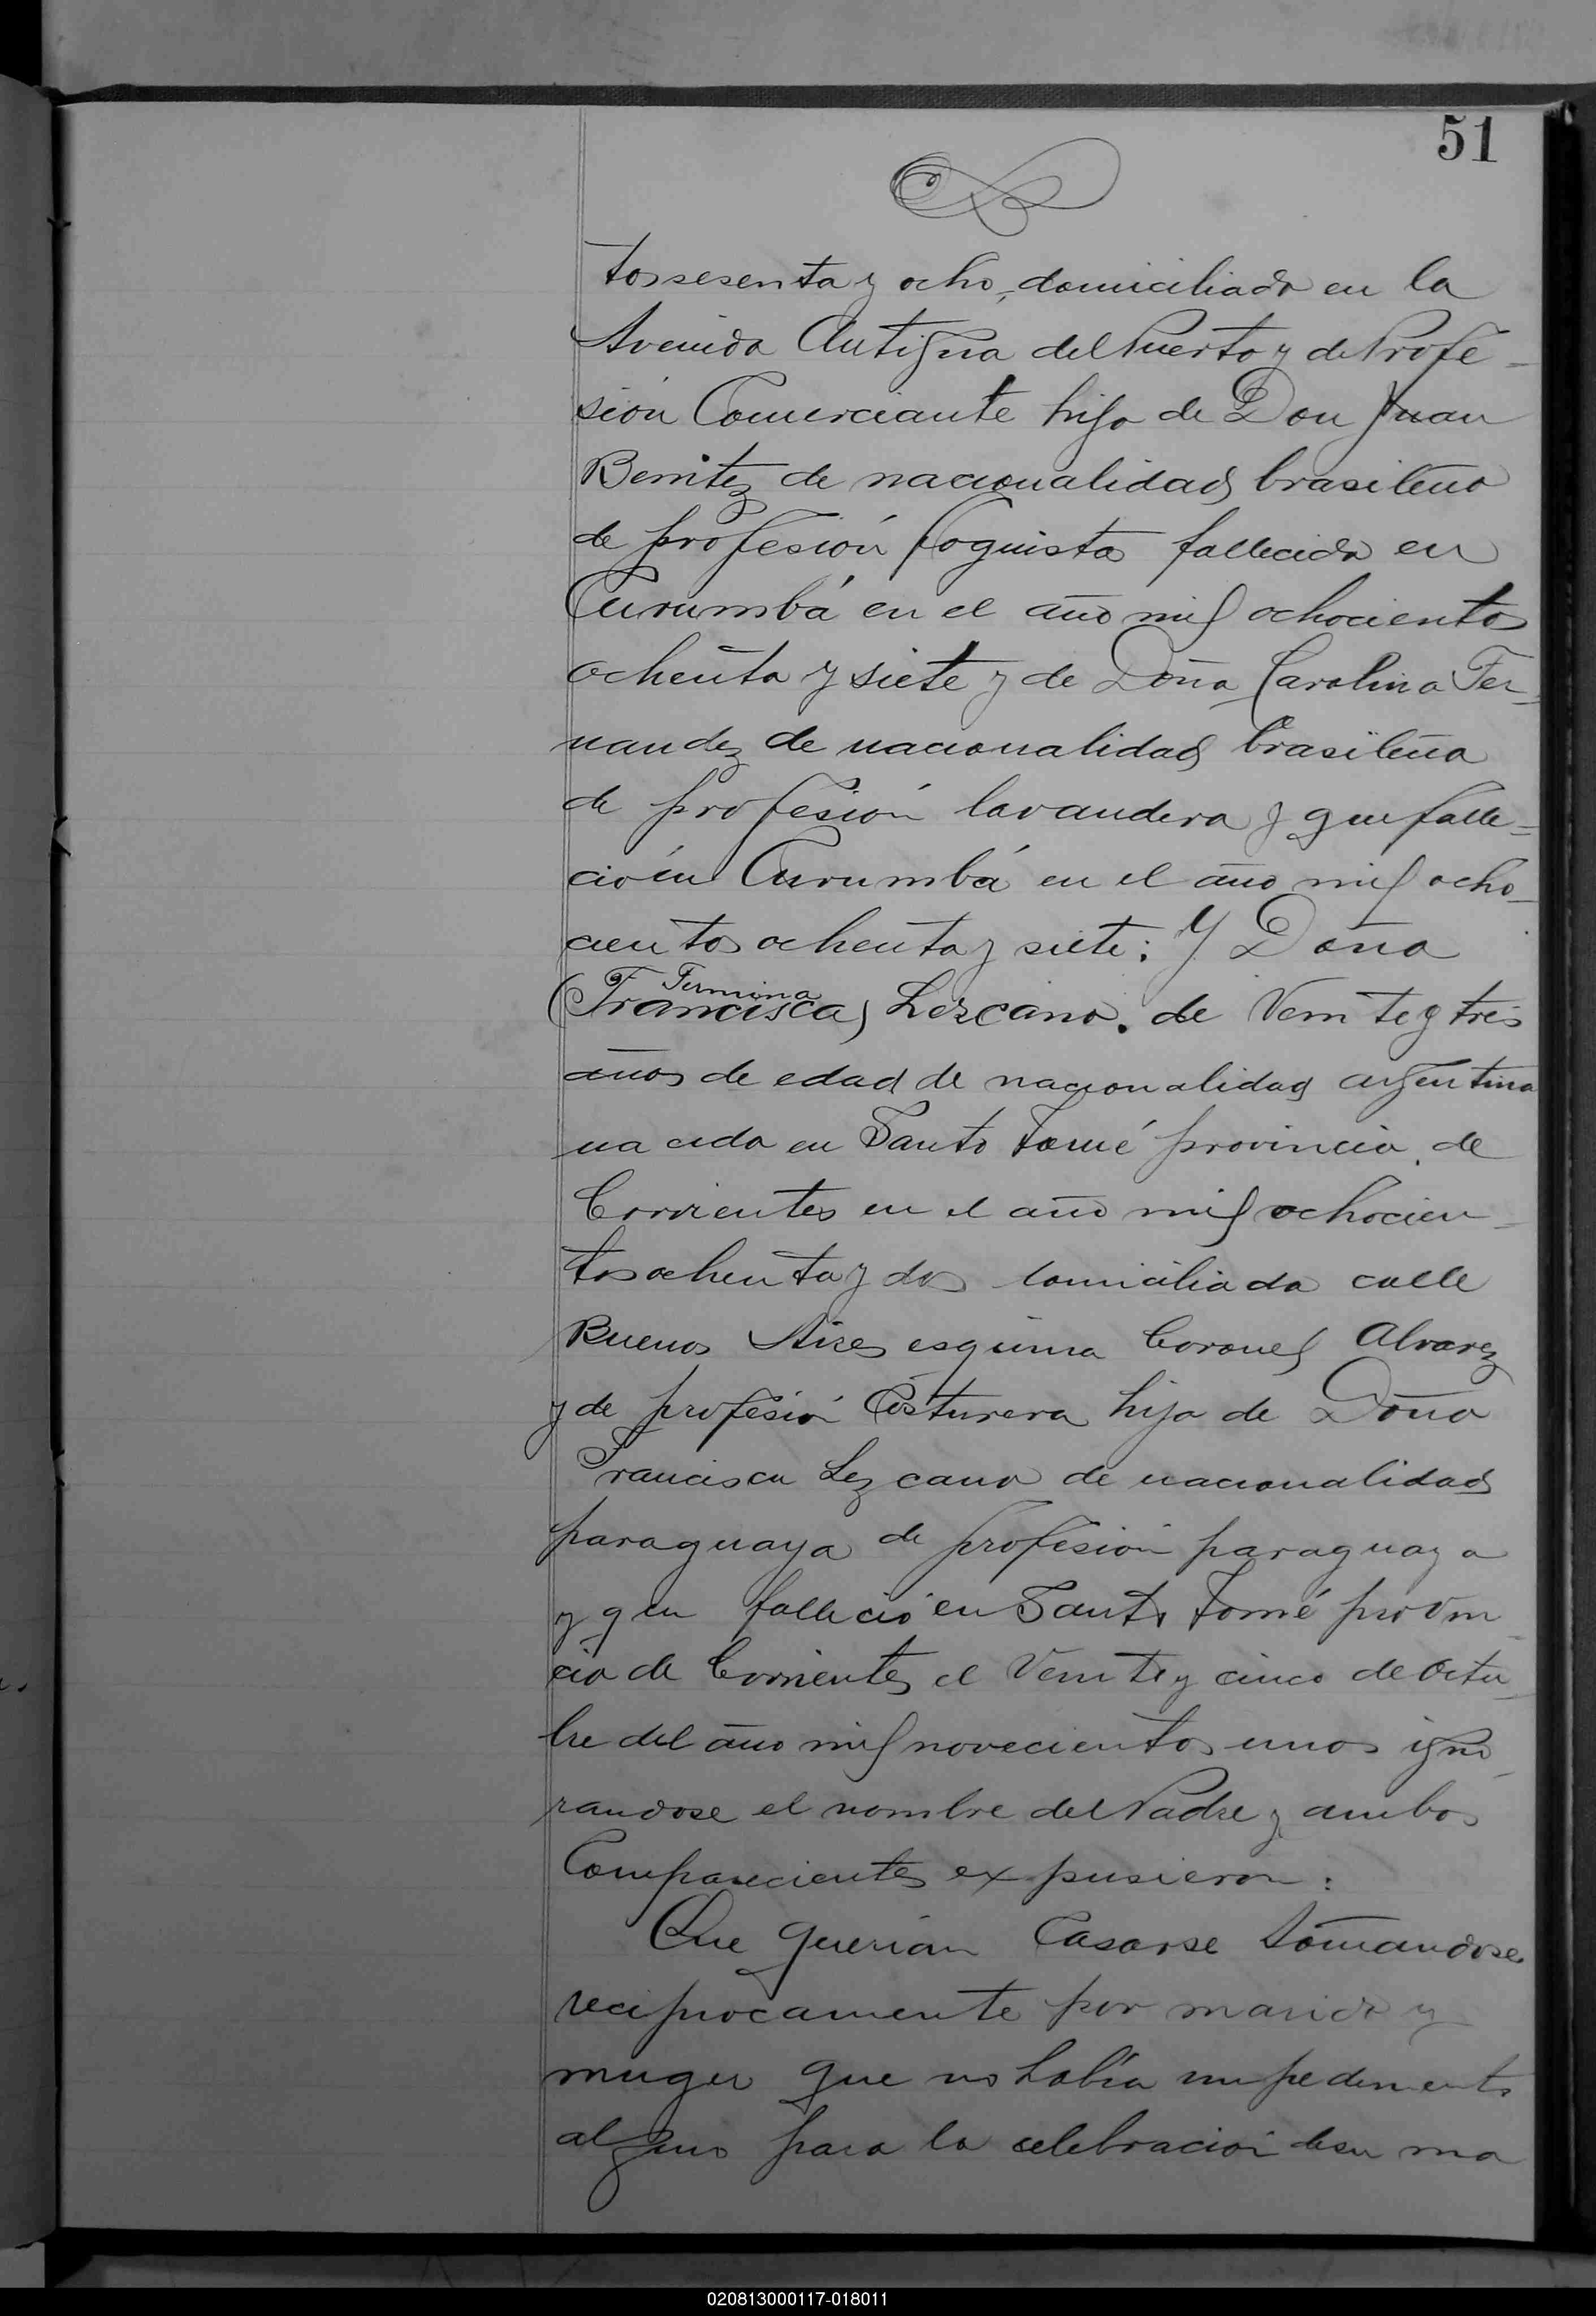 51
tos sesenta y ocho, domiciliado en la
Avenida Antigua del Puerto y de Profe-
sión Comerciante hijo de Don Juan
Benitez de nacionalidad brasileño
de profesión foguista fallecido en
Curumbá en el año mil ochocientos
ochenta y siete y de Doña Carolina Fer-
nandez de nacionalidad brasileña
de profesión lavandera y que falle-
ció en Curumbá en el año mil ocho-
cientos ochenta y siete: Y Doña
Fermina
(Francisca) Lezcano. de Veinte y tres
años de edad de nacionalidad argentina
nacida en Santo Tomé provincia de
Corrientes en el año mil ochocien-
tos ochenta y dos domiciliada calle
Buenos Aires esquina Coronel Alvarez
y de profesión Costurera hija de Doña
Francisca Lezcano de nacionalidad
paraguaya de profesión paraguaya
y que falleció en Santo Tomé provin-
cia de Corrientes el Veinte y cinco de Octu-
bre del año mil novecientos unos igno-
randose el nombre del Padre y ambos
Comparecientes expusieron:
Que querian Casarse tomandose
reciprocamente por marido y
muger que no había impedimento
alguno para la celebración de su ma
020813000117-018011